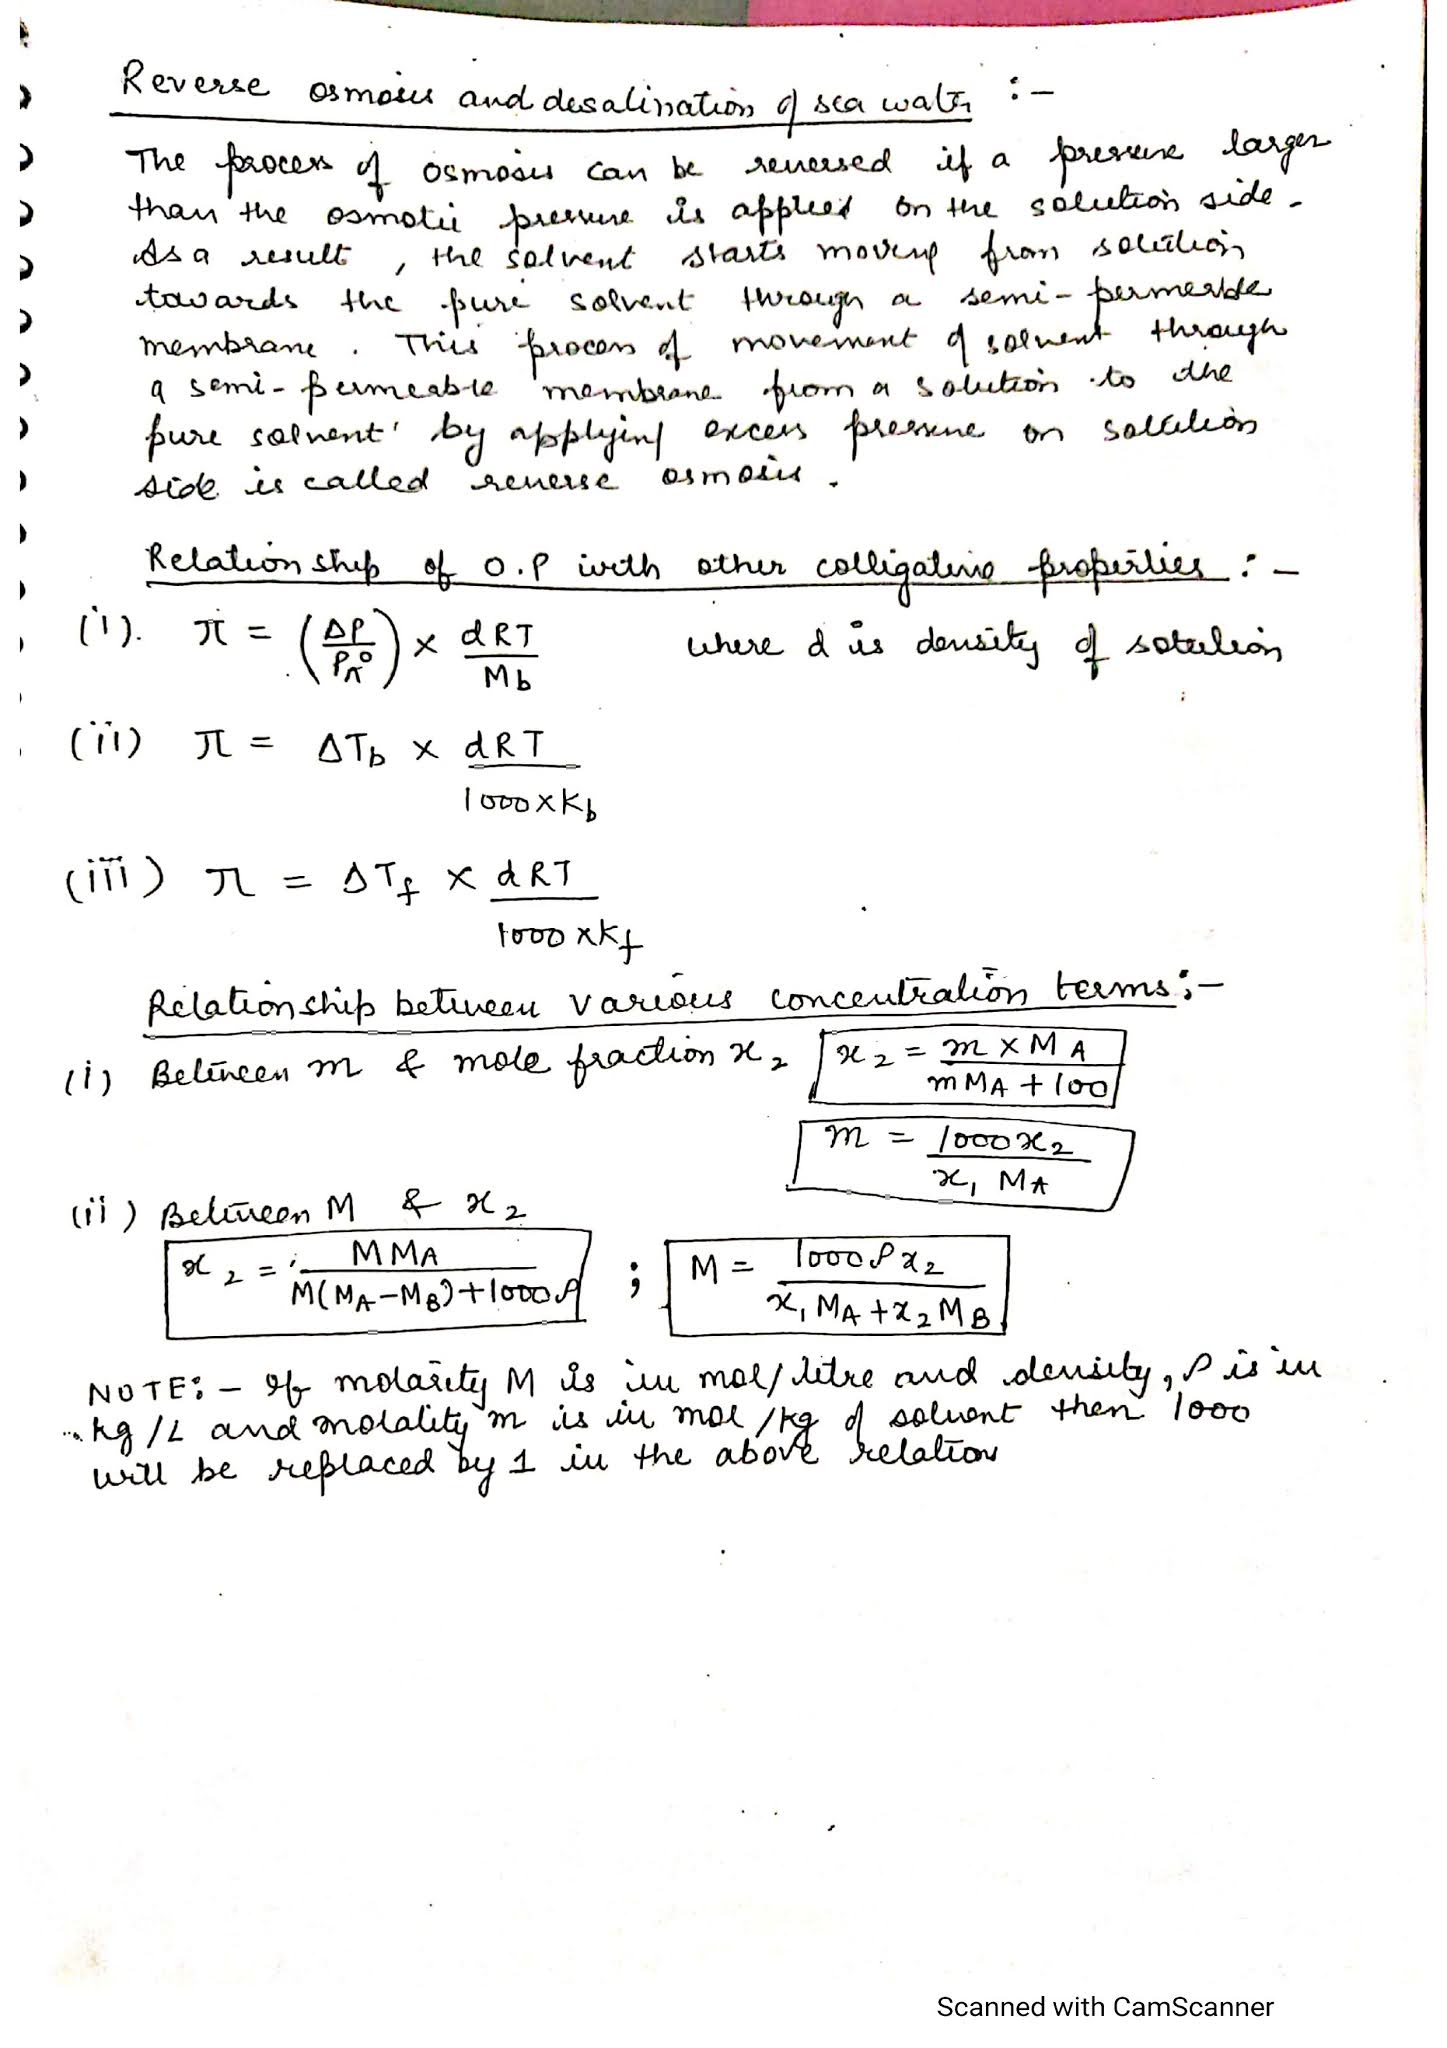 Reverse osmosis and desalination of sea water :-
The process of osmosis can be reversed if a pressure larger
than the osmotic pressure is applied on the solution side.
As a result, the solvent starts moving from solution
towards the pure solvent through a semi-permeable
membrane. This process of movement of solvent through
a semi-permeable membrane from a solution to the
pure solvent by applying excess pressure on solution
side is called reverse osmosis.
Relationship of O.P with other colligative properties :-
(i). π = (ΔP/P_A°) × dRT/Mb where d is density of solution
(ii) π = ΔTb × dRT/1000×Kb
(iii) π = ΔTf × dRT/1000×Kf
Relationship between various concentration terms :-
(i) Between m & mole fraction x₂ x₂ = m×M_A/mM_A+100
m = 1000x₂/x₁ M_A
(ii) Between M & x₂
x₂ = MM_A/M(M_A-M_B)+1000ρ ; M = 1000ρx₂/x₁M_A+x₂M_B
NOTE:- If molarity M is in mol/litre and density, ρ is in
kg/L and molality m is in mol/kg of solvent then 1000
will be replaced by 1 in the above relation
Scanned with CamScanner